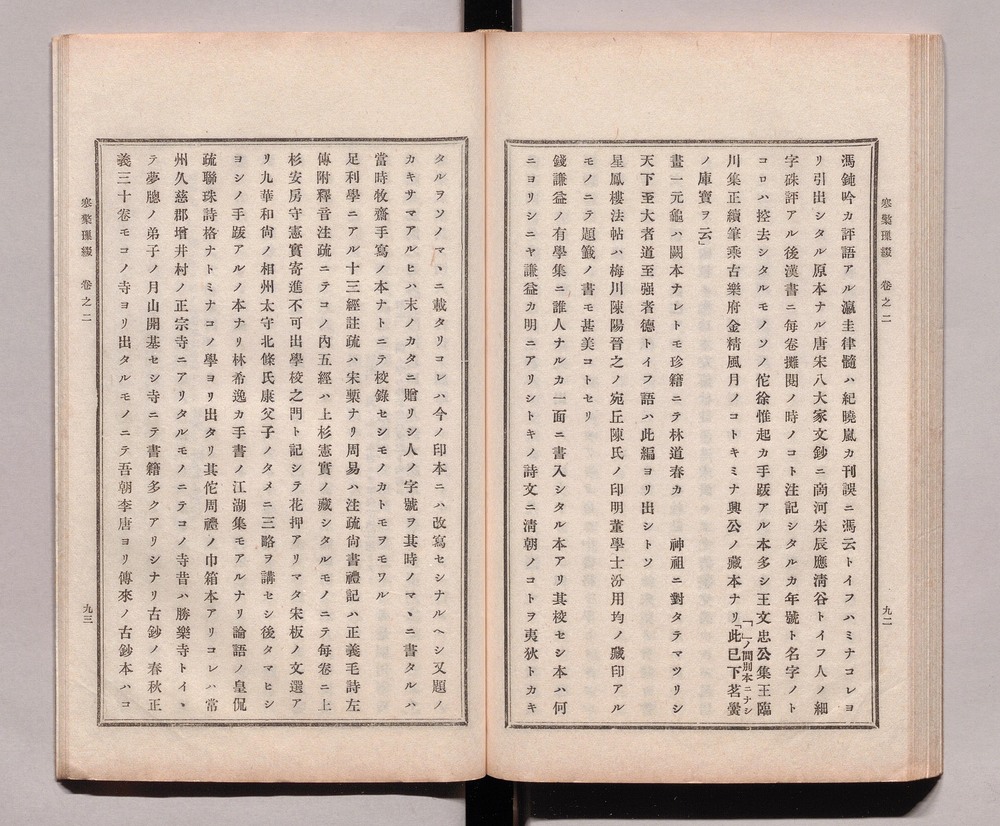 寒檠璅綴　卷之二
九二
馮鈍吟カ評語アル瀛圭律髓ハ紀曉嵐カ刊誤ニ馮云トイフハミナコレヨ
リ引出シタル原本ナル唐宋八大家文鈔ニ商河朱辰應清谷トイフ人ノ細
字硃評アル後漢書ニ每卷攤閱ノ時ノコト注記シタルカ年號ト名字ノト
コロハ挖去シタルモノソノ佗徐惟起カ手跋アル本多シ王文忠公集王臨
川集正續筆乘古樂府金精風月ノコトキミナ興公ノ藏本ナリ「此已下茗黌
「　」ノ間別本ニナシ
ノ庫寶ヲ云」
畫一元龜ハ闕本ナレトモ珍籍ニテ林道春カ　神祖ニ對タテマツリシ
天下至大者道至强者德トイフ語ハ此編ヨリ出シトソ
星鳳樓法帖ハ梅川陳陽晉之ノ宛丘陳氏ノ印明董學士汾用均ノ藏印アル
モノニテ題籤ノ書モ甚美コトセリ
錢謙益ノ有學集ニ誰人ナルカ一面ニ書入シタル本アリ其校セシ本ハ何
ニヨリシニヤ謙益カ明ニアリシトキノ詩文ニ清朝ノコトヲ夷狄トカキ
タルヲソノマヽニ載タリコレハ今ノ印本ニハ改寫セシナルヘシ又題ノ
カキサマアルヒハ末ノカタニ贈リシ人ノ字號ヲ其時ノマヽニ書タルハ
當時牧齋手寫ノ本ナトニテ校錄セシモノカトモヲモワル
足利學ニアル十三經註疏ハ宋槧ナリ周易ハ注疏尙書禮記ハ正義毛詩左
傳附釋音注疏ニテコノ內五經ハ上杉憲實ノ藏シタルモノニテ每卷ニ上
杉安房守憲實寄進不可出學校之門ト記シテ花押アリマタ宋板ノ文選ア
リ九華和尙ノ相州太守北條氏康父子ノタメニ三略ヲ講セシ後タマヒシ
ヨシノ手跋アルノ本ナリ林希逸カ手書ノ江湖集モアルナリ論語ノ皇侃
疏聯珠詩格ナトミナコノ學ヨリ出タリ其佗周禮ノ巾箱本アリコレハ常
州久慈郡增井村ノ正宗寺ニアリタルモノニテコノ寺昔ハ勝樂寺トイヽ
テ夢牕ノ弟子ノ月山開基セシ寺ニテ書籍多クアリシナリ古鈔ノ春秋正
義三十卷モコノ寺ヨリ出タルモノニテ吾朝李唐ヨリ傳來ノ古鈔本ハコ
寒檠璅綴　卷之二
九三